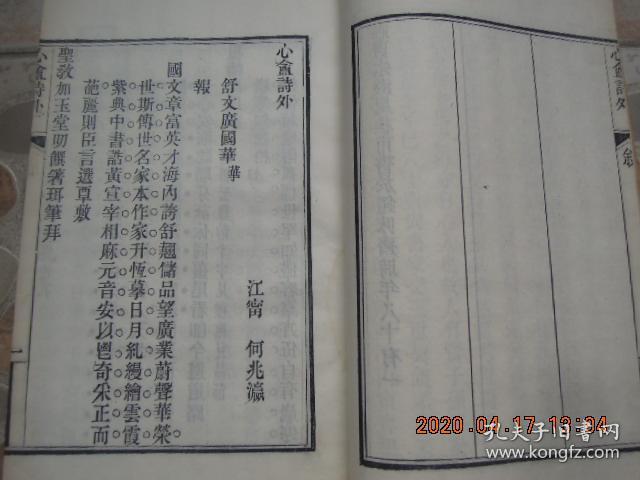 心盦詩外
敘
心盦詩外
江甯 何兆瀛
舒文廣國華 華
報
國文章富英才海內誇舒翹儲品望廣業蔚聲華榮
世斯傳世名家本作家升恆摹日月糺縵繪雲霞
紫典中書誥黃宣宰相麻元音安以鬯奇采正而
葩麗則臣言選覃敷
聖敎加玉堂叨饌箸珥筆拜
心盦詩外
一
2020.04.17 13:04
孔夫子旧书网
www.kongfz.com